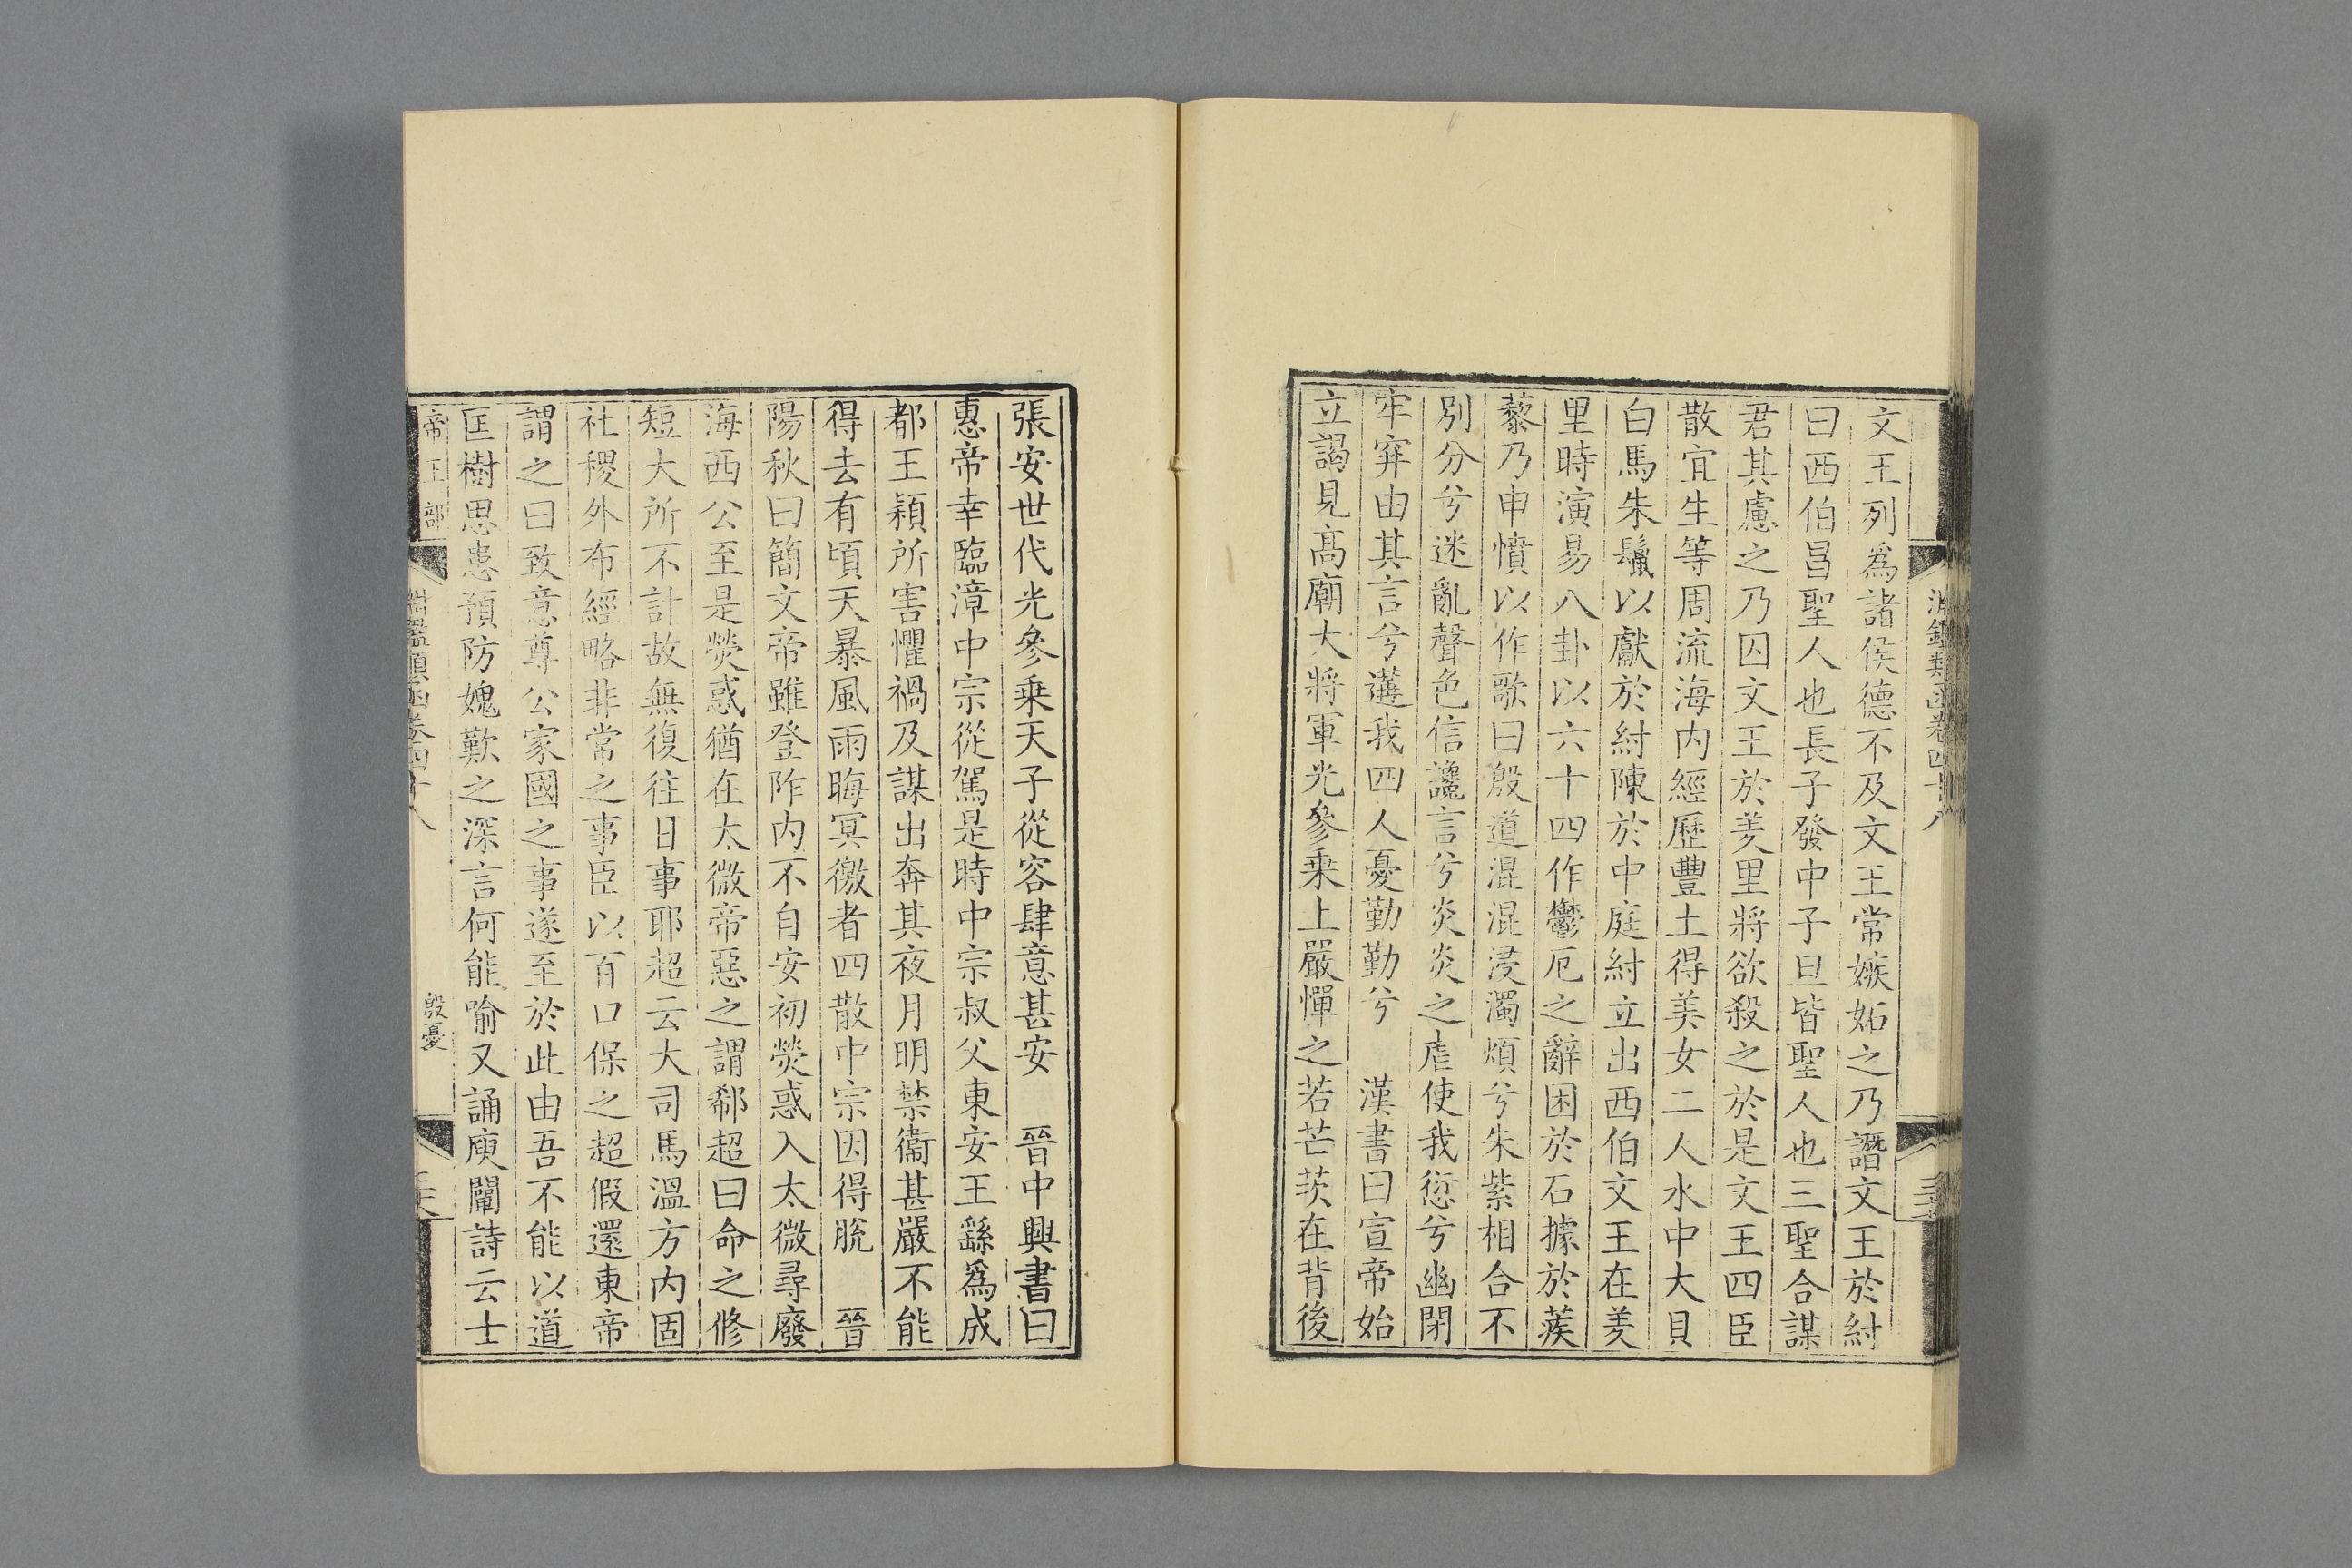 文王列爲諸侯德不及文王常嫉妬之乃譖文王於紂
曰西伯昌聖人也長子發中子旦皆聖人也三聖合謀
君其慮之乃囚文王於羑里將欲殺之於是文王四臣
散宜生等周流海内經歷豐土得美女二人水中大貝
白馬朱鬣以獻於紂陳於中庭紂立出西伯文王在羑
里時演易八卦以六十四作鬱厄之辭困於石據於蒺
藜乃申憤以作歌曰殷道混混浸濁煩兮朱紫相合不
別分兮迷亂聲色信讒言兮炎炎之虐使我愆兮幽閉
牢穽由其言兮遘我四人憂勤勤兮　漢書曰宣帝始
立謁見高廟大將軍光參乗上嚴憚之若芒茨在背後
張安世代光參乗天子從容肆意甚安　晉中興書曰
惠帝幸臨漳中宗從駕是時中宗叔父東安王繇爲成
都王穎所害懼禍及謀出奔其夜月明禁衞甚嚴不能
得去有頃天暴風雨晦冥徼者四散中宗因得脫　晉
陽秋曰簡文帝雖登阼内不自安初熒惑入太微尋廢
海西公至是熒惑猶在太微帝惡之謂郗超曰命之修
短大所不計故無復往日事耶超云大司馬溫方内固
社稷外布經略非常之事臣以百口保之超假還東帝
謂之曰致意尊公家國之事遂至於此由吾不能以道
匡樹思患預防媿歎之深言何能喻又誦庾闡詩云士
帝王部
淵鑑類函卷四十八
殷憂